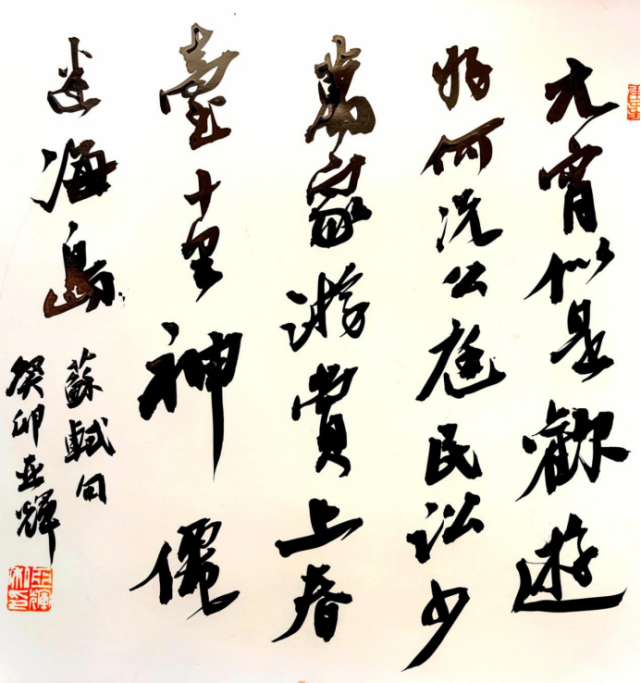 元宵似是歡遊
好何況公庭民訟少
萬家游賞上春
臺十里神僊
迷海島
蘇軾句
癸卯亞輝